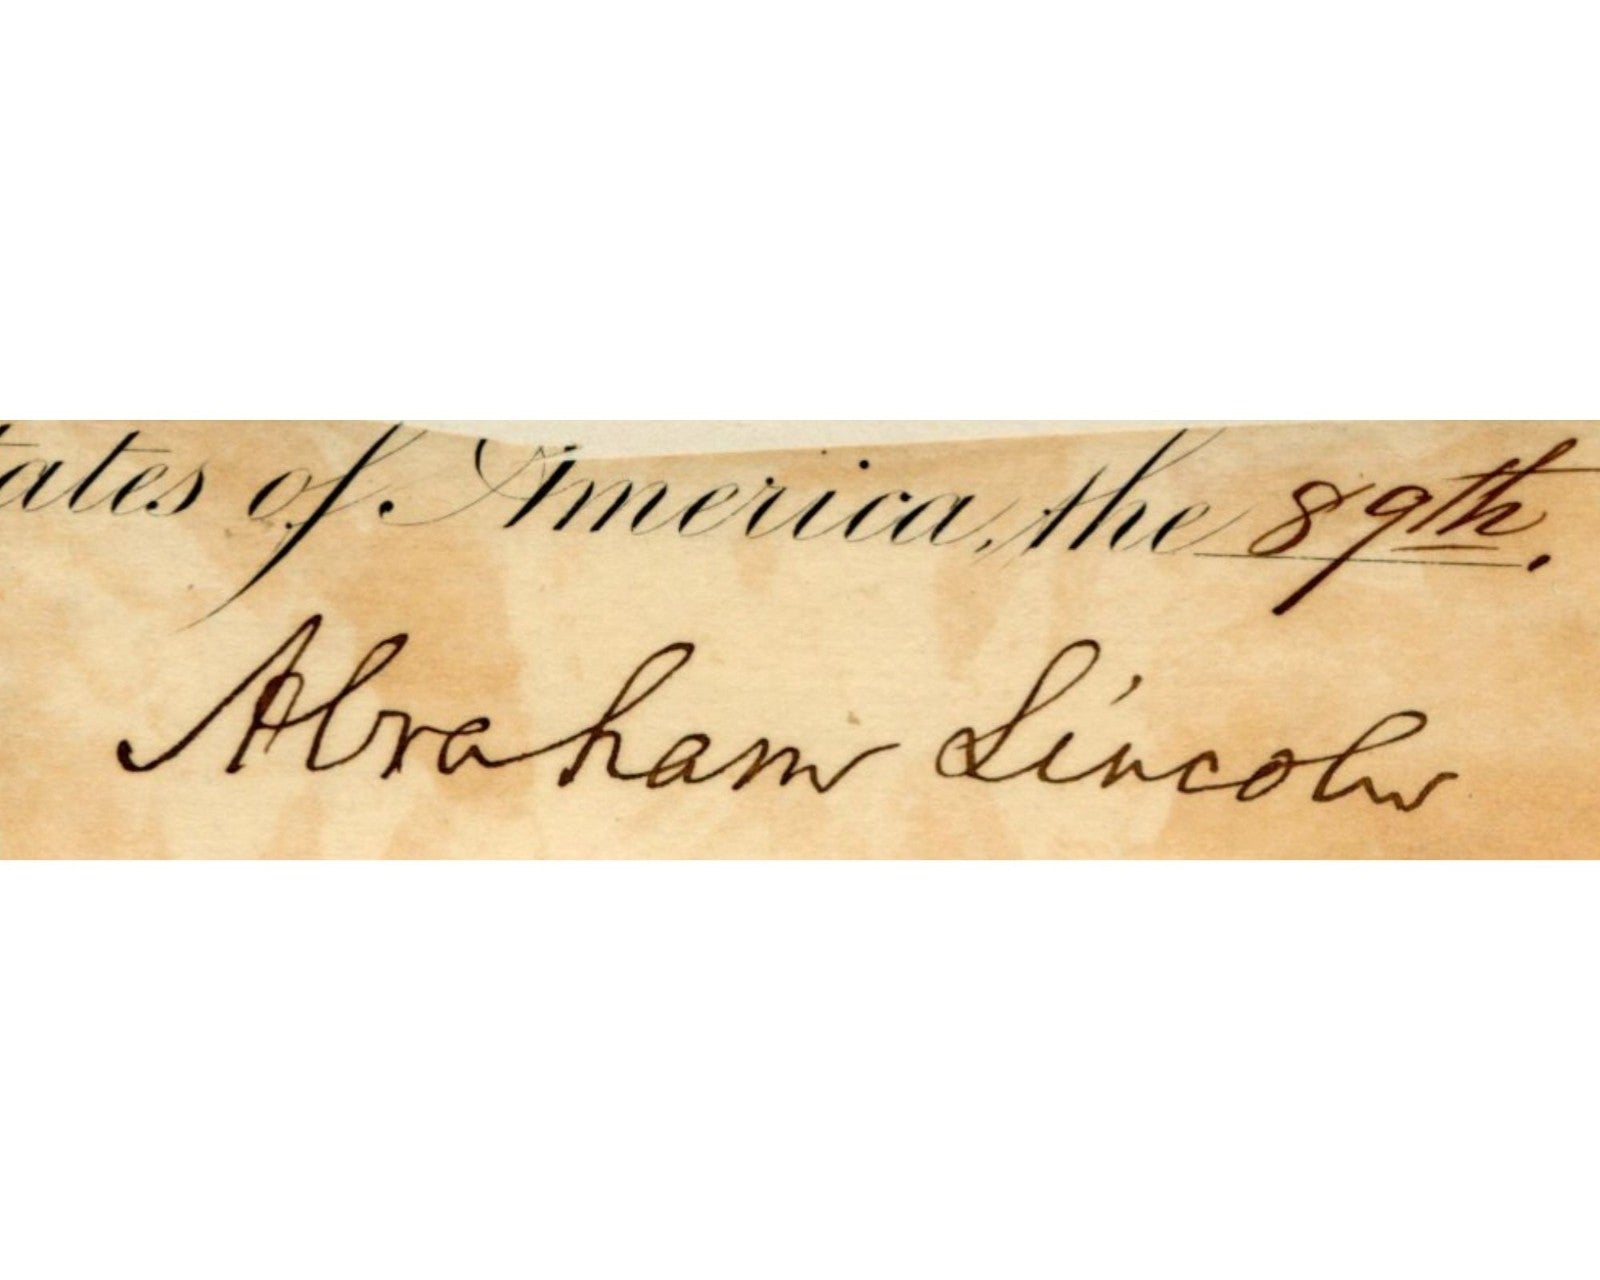 tates of America, the 89th.
Abraham Lincoln